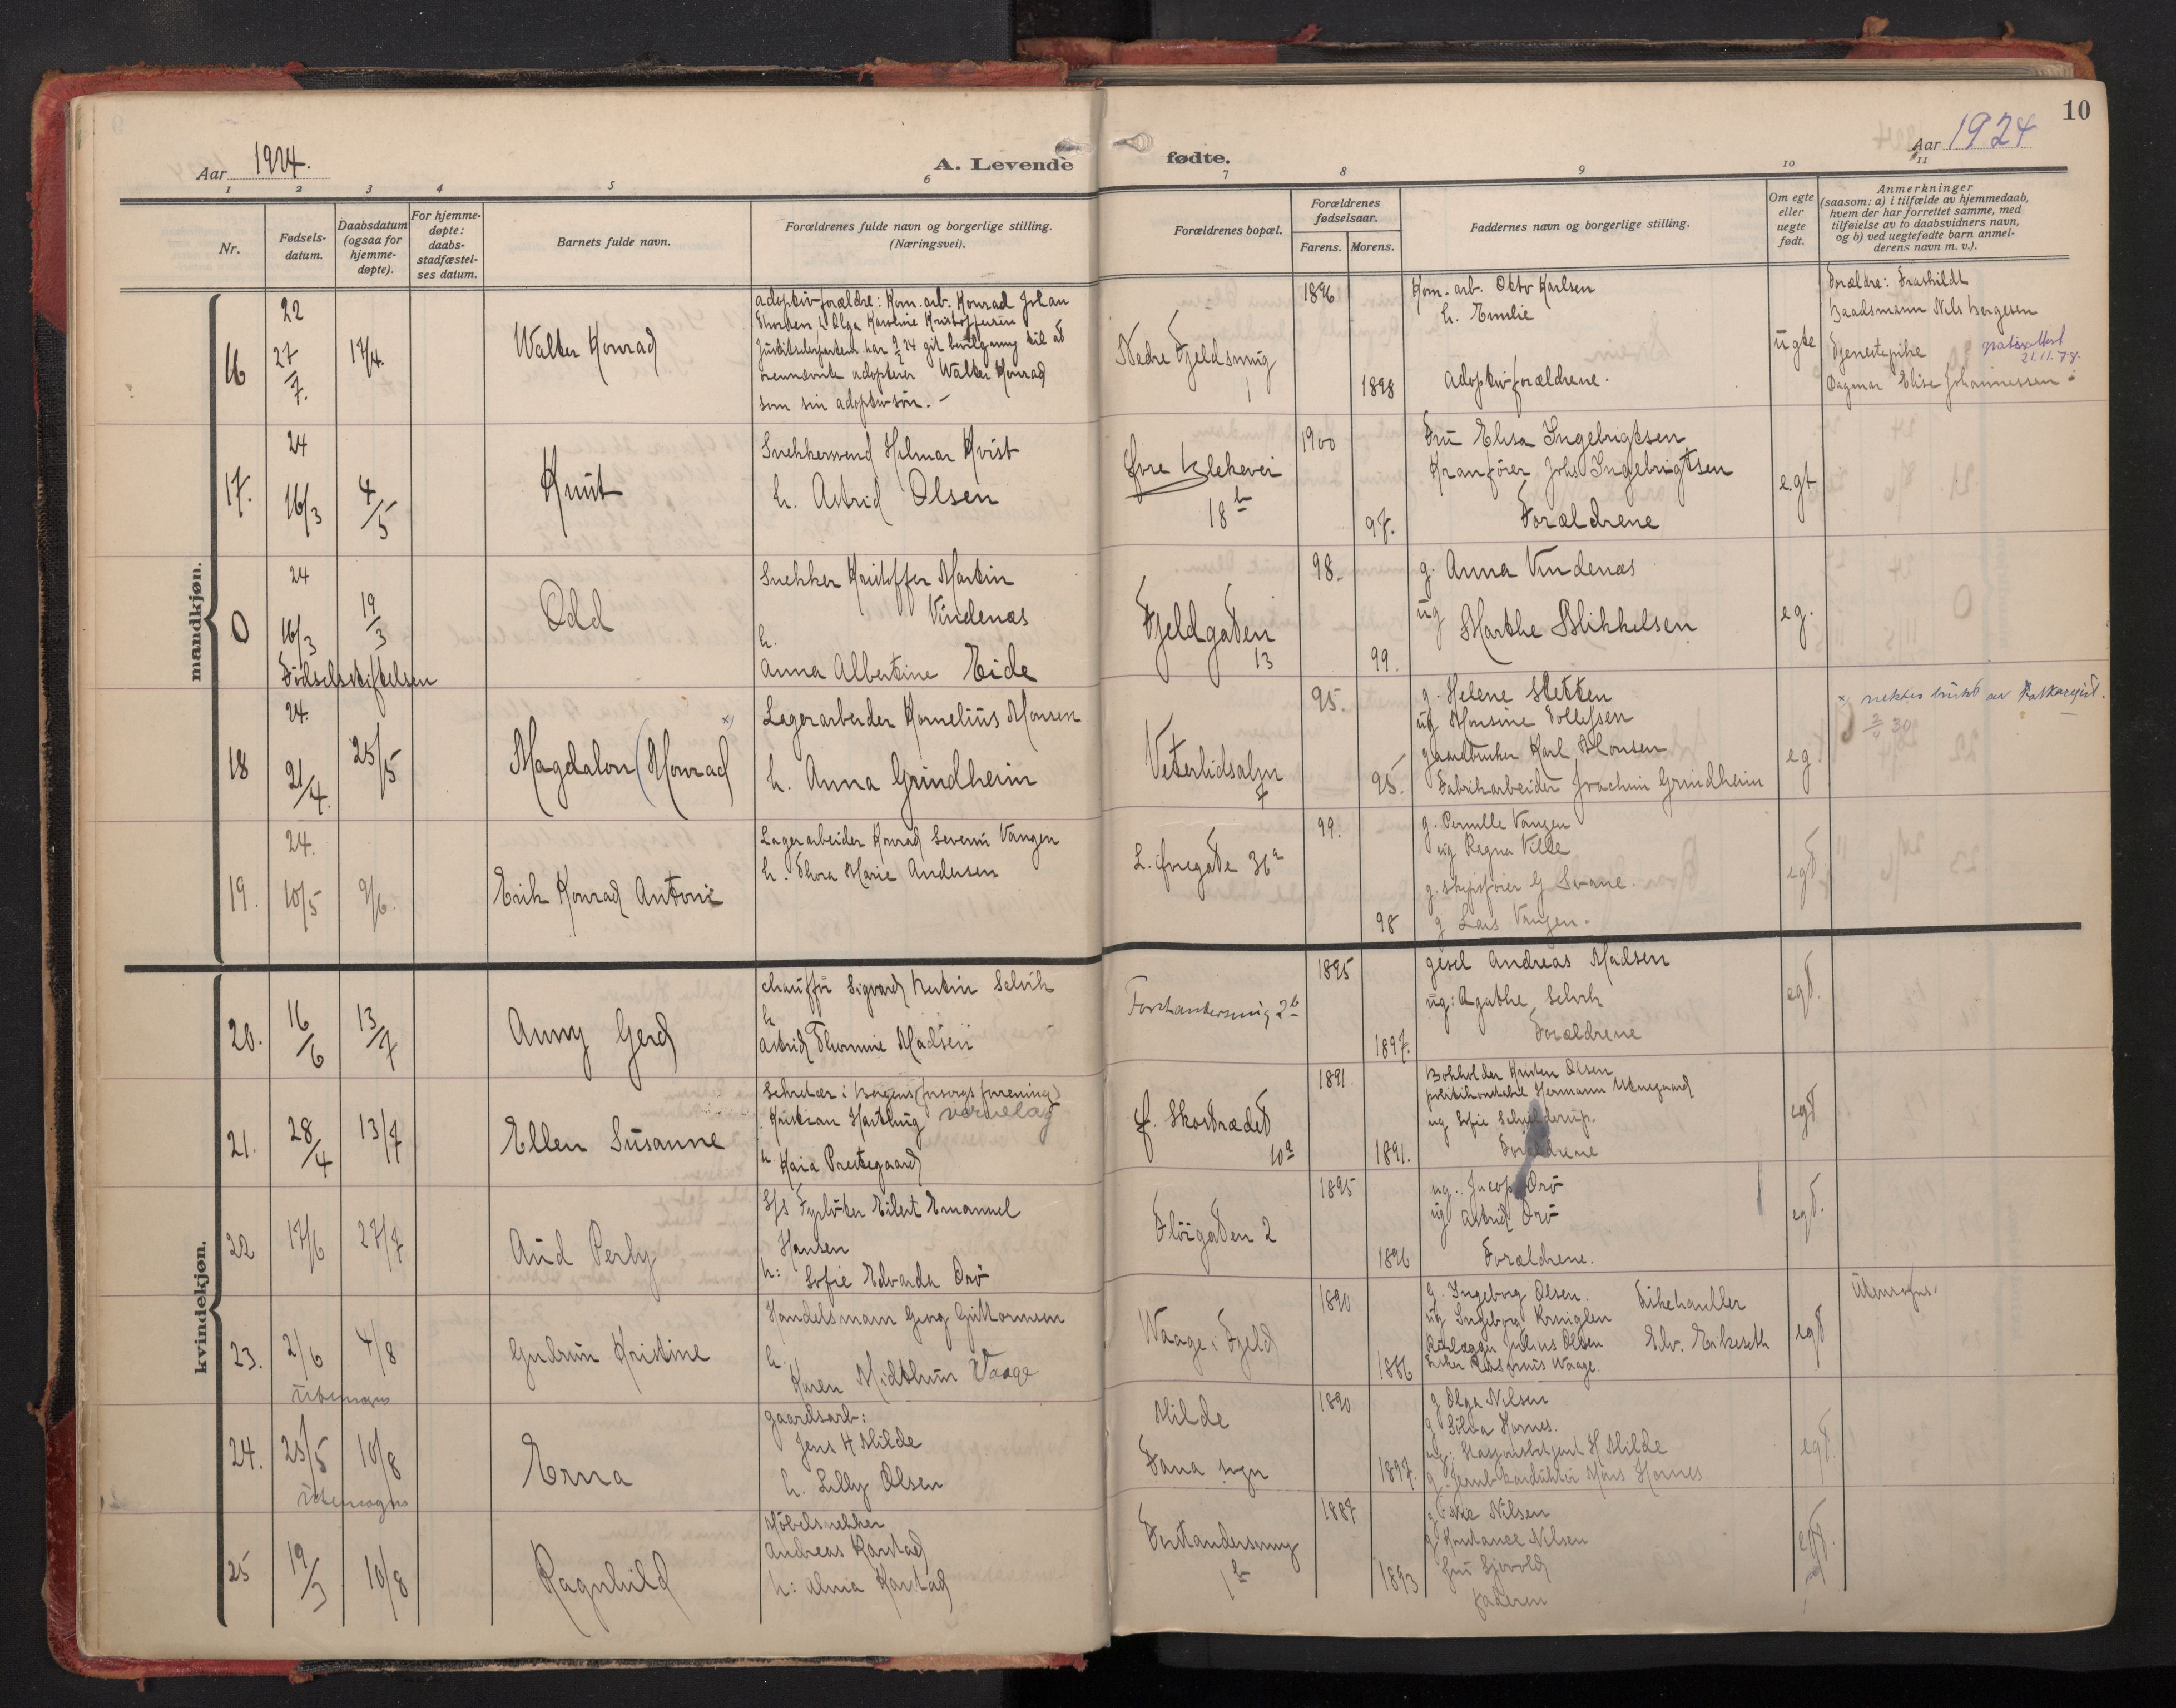 10
Aar 1924.
A. Levende
fødte.
Aar 1924
1 2 3 4 5 6 7 8 9 10 11
Nr.
Fødsels-
datum.
Daabsdatum
(ogsaa for
hjemme-
døpte).
For hjemme-
døpte:
daabs-
stadfæstel-
ses datum.
Barnets fulde navn.
Forældrenes fulde navn og borgerlige stilling.
(Næringsvei).
Forældrenes bopæl.
Forældrenes
fødselsaar.
Farens. Morens.
Faddernes navn og borgerlige stilling.
Om egte
eller
uegte
født.
Anmerkninger
(saasom: a) i tilfælde av hjemmedaab,
hvem der har forrettet samme, med
tilføielse av to daabsvidners navn,
og b) ved uegtefødte barn anmel-
derens navn m. v.).
mandkjøn.
16
22
27/7.
17/4.
Walter Konrad
adoptivforældre: Kom. arb. Konrad Johan
h. Olga Karoline Kristoffersen
har 24 git til at
adoptere Walter Konrad
som sin adoptivsøn. -
Nedre Fjeldsmug
1
1896
1898
Kom. arb. Otto Karlsen
h. Emilie
adoptivforældrene.
ugte
Forældre: Fraskildt
Baadsmann Nels Borgesen
Tjenestepike
21.11.78.
Dagmar Elise Johannessen
17.
24
16/3
4/5
Knut
Snekkersvend Hilmar Kvist
h. Astrid Olsen
Øvre Blekevei
18 b
1900
97.
Fru Elisa Ingebrigtsen
Kranfører Johs Ingebrigtsen
Forældrene
egt
0
24
16/3
19/3
Fødselsstiftelsen
Odd
Snekker Kristoffer Martin
Vindenæs
h.
Anna Albertine Eide
Fjeldgaten
13
98.
99.
g. Anna Vindenæs
ug Marthe Mikkelsen
eg.
18
24.
21/4.
25/5
Magdalon (Monrad x)
Lagerarbeider Kornelius Monsen
h. Anna Grindheim
Vetrlidsalm
7
95.
95.
g. Helene Sletten
ug Monsine Tollefsen
gaardbruker Karl Monsen
Fabrikarbeider Joachim Grindheim
eg
x) nektes brukt av
30
19.
24.
10/5
9/6.
Erik Konrad Antoni
Lagerarbeider Konrad Severin Vangen
h. Thora Marie Andersen
L. Øvregate 36 a
99.
98
g. Pernille Vangen
ug Ragna Ville
g. skipsfører G Svane.
g Lars Vangen.
egt
kvindekjøn.
20.
16/6
13/7
Anny Gerd
chauffør Sigvard Martin Selvik
h
Astrid Thommine Madsen
Forstandersmug 2 b
1895
1897.
gesel Andreas Madsen
ug: Agathe Selvik
Forældrene
egt.
21.
28/4
13/7
Ellen Susanne
Sekretær i Bergens (forsorgs forening)
Kristian Hartling vernelag
h Kaia Prestegaard
f. Skostrædet
10 a
1891.
1891.
Bokholder Kristen Olsen
politikonstabel Hermann
ug Sofie Schjelderup.
Forældrene
egt
22
17/6
27/7
Aud Perly
S/s Fyrbøter Eilert Emanuel
Hansen
h: Sofie Edvarda Orø
Fløigaten 2
1895
1896
ug. Jacop Orø
ug Astrid Orø
Forældrene.
egt.
23.
2/6
4/8
Utensogns
Gudrun Kristine
Handelsmann Georg Guttormsen
h.
Karen Midthun Vaage
Waage i Fjeld
1890
1886
g. Ingeborg Olsen. Fiskehandler
ug Ingeborg Kringlen
Julius Olsen Edv. Erikseth
Rasmus Waage.
egt
Utensogns.
24.
25/5
10/8
Utensogns
Erna
gaardsarb:
Jens H Milde
h. Lilly Olsen
Milde
Fana sogn
1890
1897.
g Olga Nilsen
g Solva Hornes.
ug: Stasjonsbetjent H Milde
g. Jernb. konduktør Mons Hornes.
egt.
25
19/3
10/8
Ragnhild
Møbelsnekker
Andreas Karstad
h: Alma Karstad
Forstandersmug
1 b
1887
1893
g Nilsen
g Konstance Nilsen
fru Sjovold
faderen
egt.